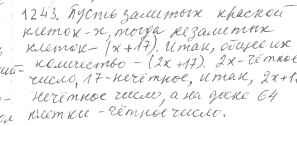 1243. Пусть залитых краской
клеток - x, тогда незалитых
клеток - (x + 17). Итак, общее их
количество - (2x + 17). 2x - чётное
число, 17 - нечётное, итак, 2x + 17
нечётное число, а на доске 64
клетки - чётное число.